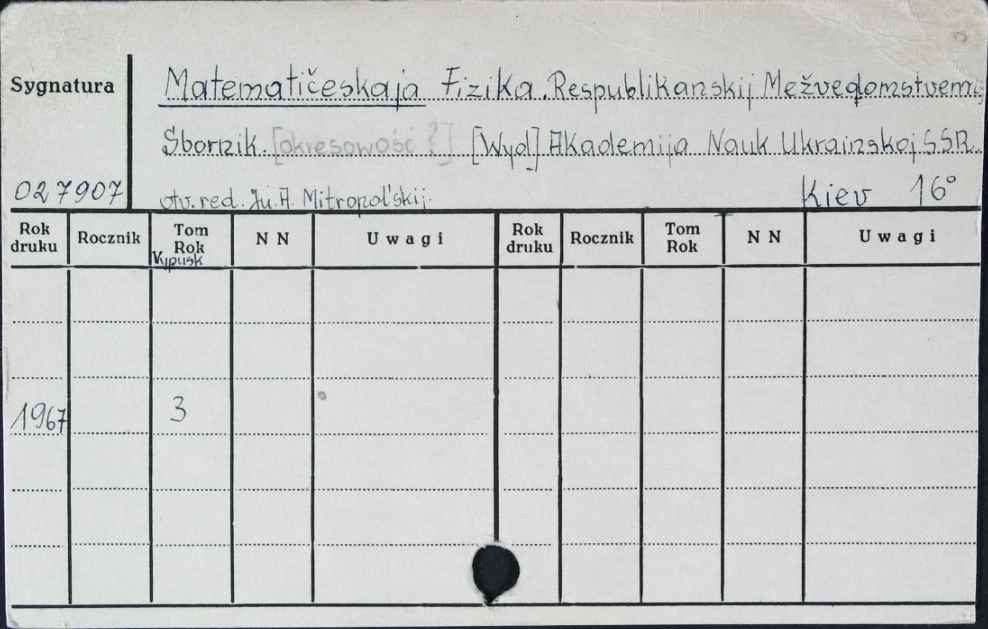 Sygnatura
Matematičeskaja Fizika. Respublikanskij Mežvedomstvennyj
Sbornik. [okresowość ?] [Wyd] Akademija Nauk Ukrainskoj SSR.
027907
otv. red. Ju. A. Mitropol'skij. Kiev 16°
Rok druku Rocznik Tom Rok Vypusk N N Uwagi Rok druku Rocznik Tom Rok N N Uwagi
1967 3